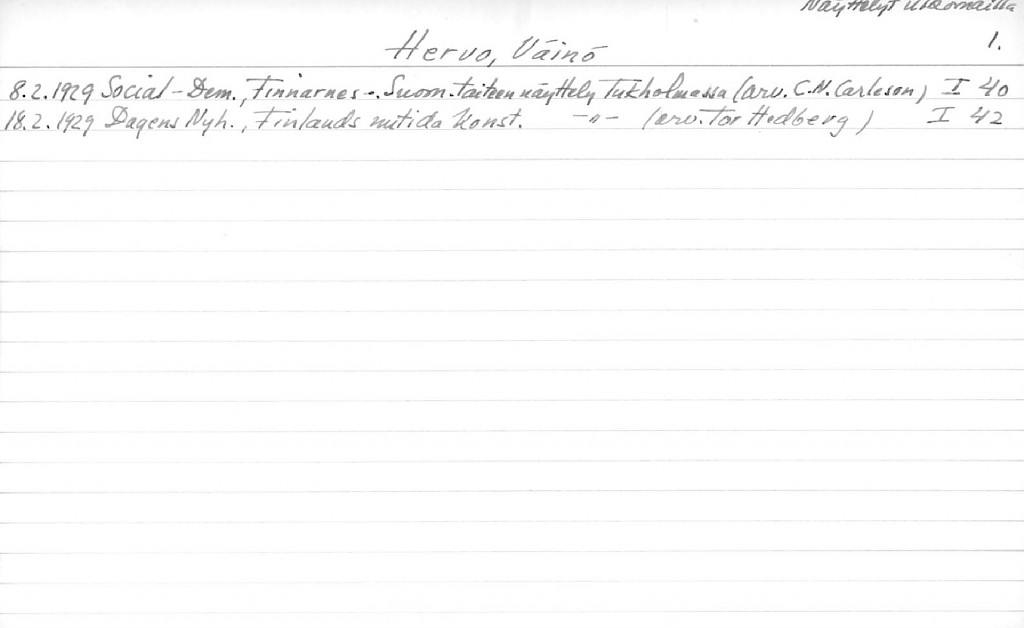 Näyttelyt ulkomailla
1.
Hervo, Väinö
8.2.1929 Social-Dem., Finnarnes -. Suom. taiteen näyttely Tukholmassa (arv. C.N. Carleson) I 40
18.2.1929 Dagens Nyh., Finlands nutida konst. -"- (arv. Tor Hedberg) I 42